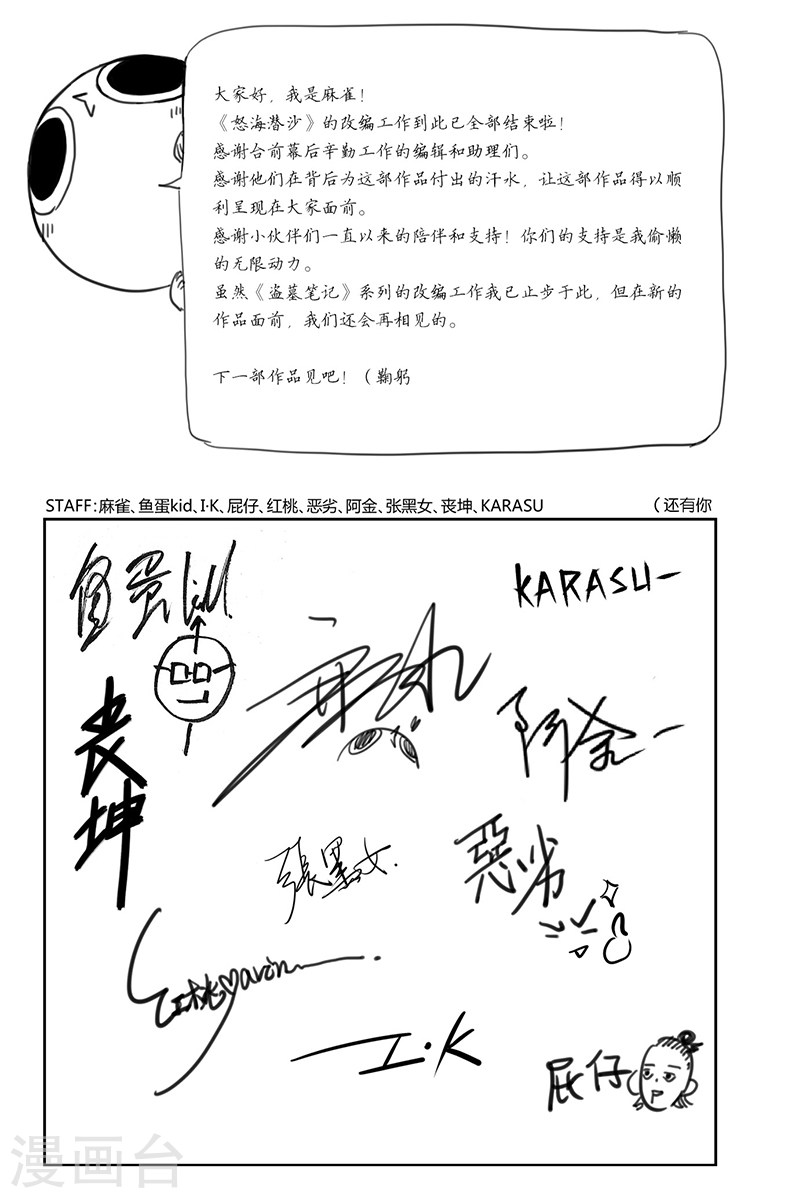 大家好，我是麻雀！
《怒海潜沙》的改编工作到此已全部结束啦！
感谢台前幕后辛勤工作的编辑和助理们。
感谢他们在背后为这部作品付出的汗水，让这部作品得以顺
利呈现在大家面前。
感谢小伙伴们一直以来的陪伴和支持！你们的支持是我偷懒
的无限动力。
虽然《盗墓笔记》系列的改编工作我已止步于此，但在新的
作品面前，我们还会再相见的。
下一部作品见吧！（鞠躬
STAFF:麻雀、鱼蛋kid、I·K、屁仔、红桃、恶劣、阿金、张黑女、丧坤、KARASU （还有你
鱼蛋kid
KARASU
丧坤
阿金
張黑女.
惡劣
红桃♡
I·K
屁仔
漫画台